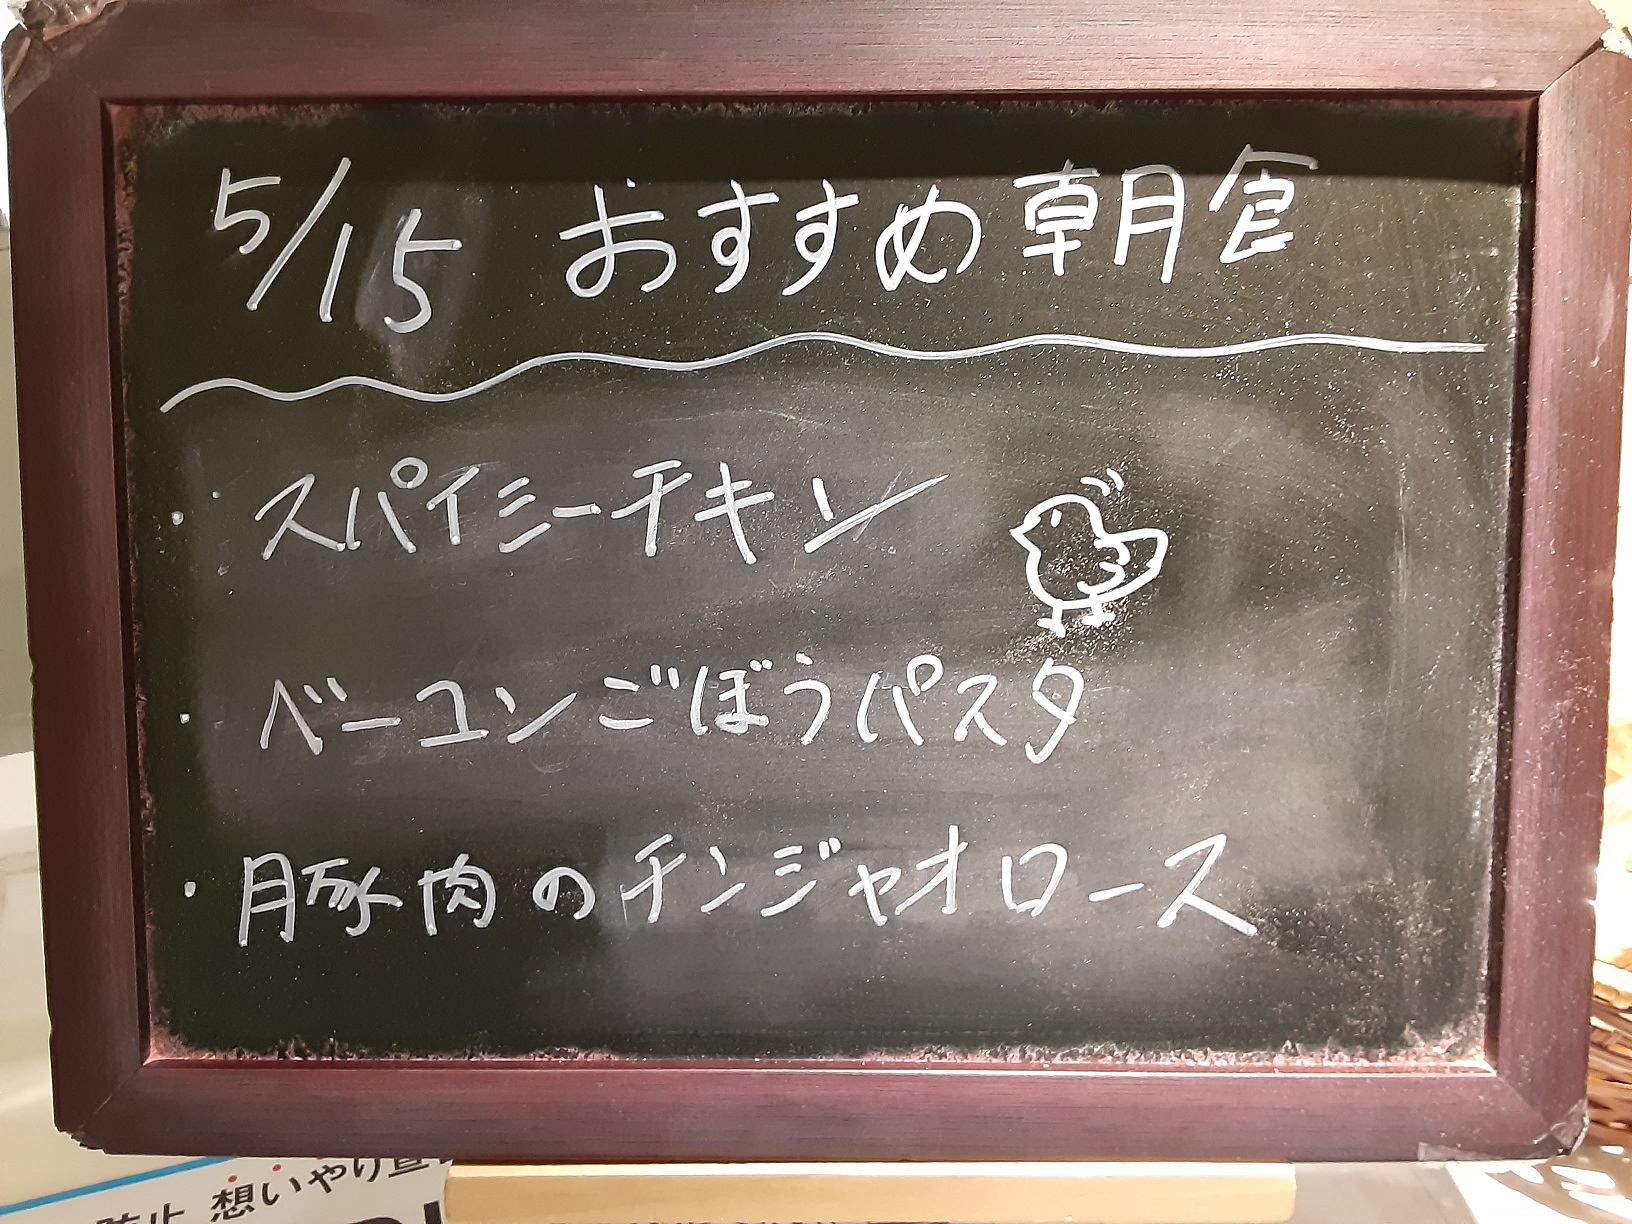 5/15 おすすめ朝食
・スパイミーチキン
・ベーユンごぼうパスタ
・豚肉のチンジャオロース
防止 想いやり宣